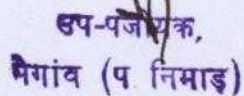 उप-पंजीयक,
सेगांव (प निमाड़)